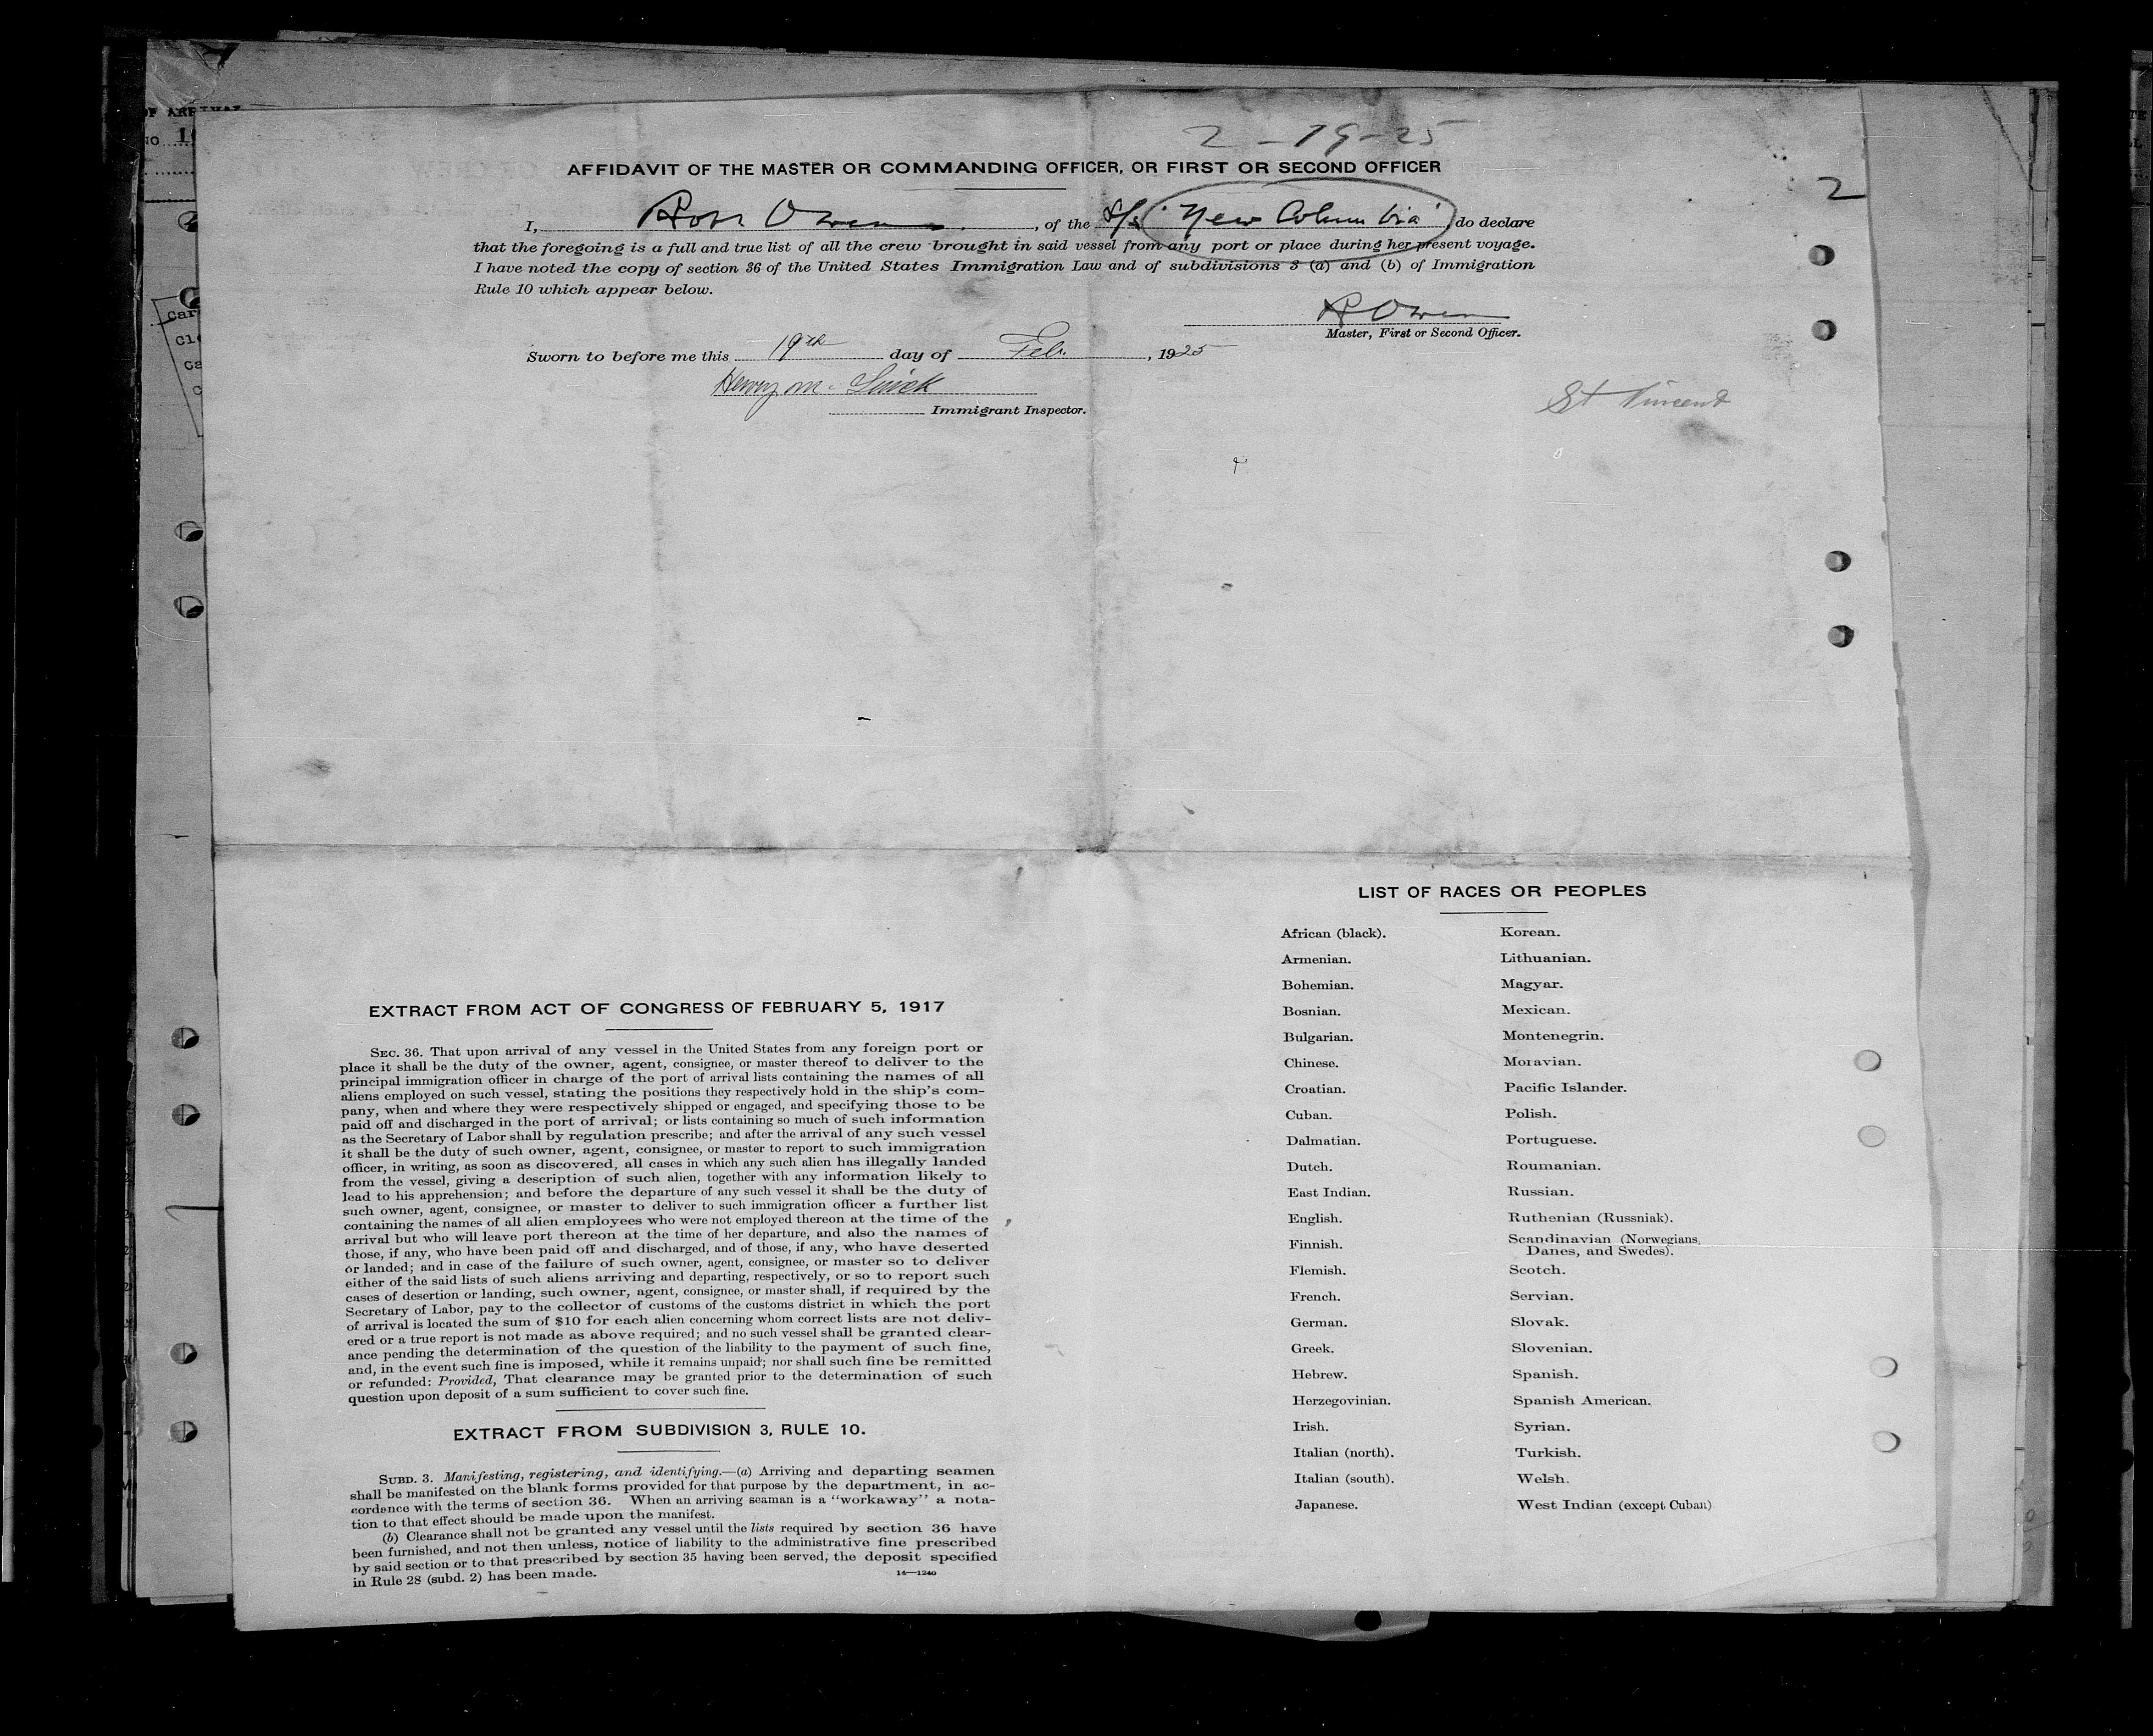 2-19-25
AFFIDAVIT OF THE MASTER OR COMMANDING OFFICER, OR FIRST OR SECOND OFFICER
2
I, Ross Owen, of the S/s "New Columbia" do declare
that the foregoing is a full and true list of all the crew brought in said vessel from any port or place during her present voyage.
I have noted the copy of section 36 of the United States Immigration Law and of subdivisions 3 (a) and (b) of Immigration
Rule 10 which appear below.
R Owen
Master, First or Second Officer.
Sworn to before me this 19th day of Feb., 1925
Henry M.
Immigrant Inspector.
St Vincent
EXTRACT FROM ACT OF CONGRESS OF FEBRUARY 5, 1917
SEC. 36. That upon arrival of any vessel in the United States from any foreign port or
place it shall be the duty of the owner, agent, consignee, or master thereof to deliver to the
principal immigration officer in charge of the port of arrival lists containing the names of all
aliens employed on such vessel, stating the positions they respectively hold in the ship's com-
pany, when and where they were respectively shipped or engaged, and specifying those to be
paid off and discharged in the port of arrival; or lists containing so much of such information
as the Secretary of Labor shall by regulation prescribe; and after the arrival of any such vessel
it shall be the duty of such owner, agent, consignee, or master to report to such immigration
officer, in writing, as soon as discovered, all cases in which any such alien has illegally landed
from the vessel, giving a description of such alien, together with any information likely to
lead to his apprehension; and before the departure of any such vessel it shall be the duty of
such owner, agent, consignee, or master to deliver to such immigration officer a further list
containing the names of all alien employees who were not employed thereon at the time of the
arrival but who will leave port thereon at the time of her departure, and also the names of
those, if any, who have been paid off and discharged, and of those, if any, who have deserted
or landed; and in case of the failure of such owner, agent, consignee, or master so to deliver
either of the said lists of such aliens arriving and departing, respectively, or so to report such
cases of desertion or landing, such owner, agent, consignee, or master shall, if required by the
Secretary of Labor, pay to the collector of customs of the customs district in which the port
of arrival is located the sum of $10 for each alien concerning whom correct lists are not deliv-
ered or a true report is not made as above required; and no such vessel shall be granted clear-
ance pending the determination of the question of the liability to the payment of such fine,
and, in the event such fine is imposed, while it remains unpaid; nor shall such fine be remitted
or refunded: Provided, That clearance may be granted prior to the determination of such
question upon deposit of a sum sufficient to cover such fine.
EXTRACT FROM SUBDIVISION 3, RULE 10.
SUBD. 3. Manifesting, registering, and identifying.—(a) Arriving and departing seamen
shall be manifested on the blank forms provided for that purpose by the department, in ac-
cordance with the terms of section 36. When an arriving seaman is a "workaway" a nota-
tion to that effect should be made upon the manifest.
(b) Clearance shall not be granted any vessel until the lists required by section 36 have
been furnished, and not then unless, notice of liability to the administrative fine prescribed
by said section or to that prescribed by section 35 having been served, the deposit specified
in Rule 28 (subd. 2) has been made.
14—1240
LIST OF RACES OR PEOPLES
African (black).
Armenian.
Bohemian.
Bosnian.
Bulgarian.
Chinese.
Croatian.
Cuban.
Dalmatian.
Dutch.
East Indian.
English.
Finnish.
Flemish.
French.
German.
Greek.
Hebrew.
Herzegovinian.
Irish.
Italian (north).
Italian (south).
Japanese.
Korean.
Lithuanian.
Magyar.
Mexican.
Montenegrin.
Moravian.
Pacific Islander.
Polish.
Portuguese.
Roumanian.
Russian.
Ruthenian (Russniak).
Scandinavian (Norwegians,
Danes, and Swedes).
Scotch.
Servian.
Slovak.
Slovenian.
Spanish.
Spanish American.
Syrian.
Turkish.
Welsh.
West Indian (except Cuban)